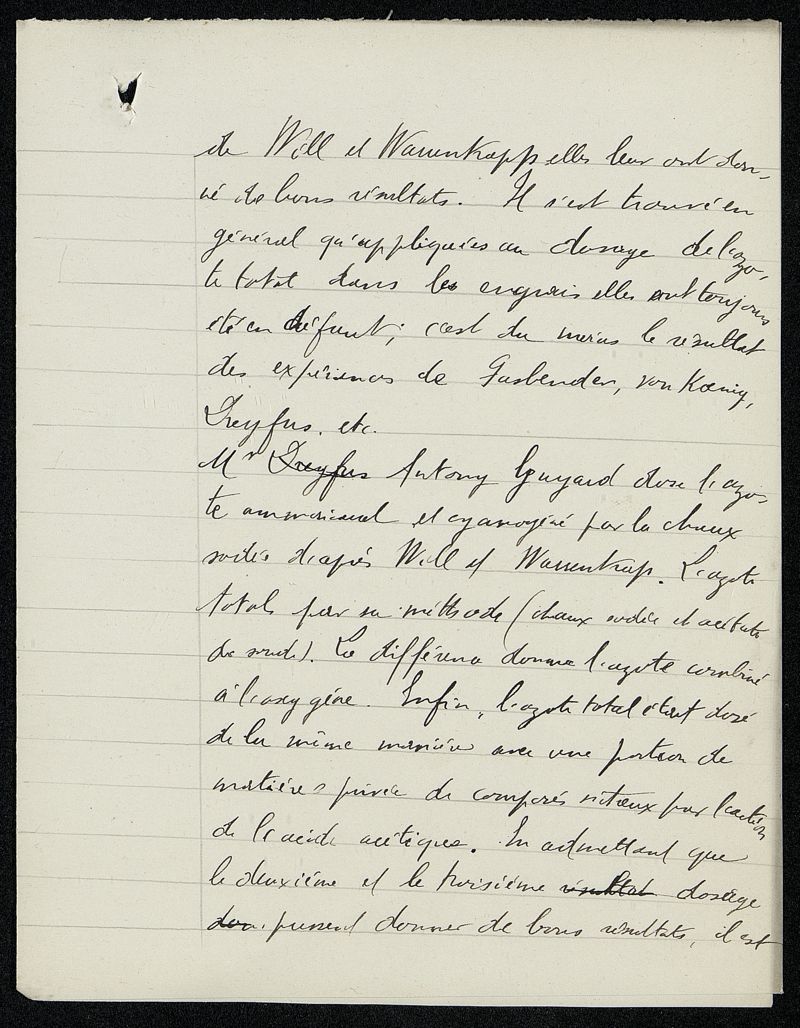 de Will et Warrentrapp elles leur ont don-
né de bons résultats. Il s'est trouvé en
général qu'appliquées au dosage de l'azo-
te total dans les engrais elles ont toujours
été en défaut; c'est du moins le résultat
des expériences de Gasbender, von Kœnig,
Dreyfus, etc.
Mr Dreyfus Antony Guyard dose l'azo-
te ammoniacal et cyanogéné par la chaux
sodée d'après Will et Warrentrap. L'azote
total par sa méthode (chaux sodée et acétate
de soude). La différence donne l'azote combiné
à l'oxygène. Enfin, l'azote total étant dosé
de la même manière avec une portion de
matière privée de composés nitreux par l'action
de l'acide acétique. En admettant que
le deuxième et le troisième résultat dosage
don. pussent donner de bons résultats, il est